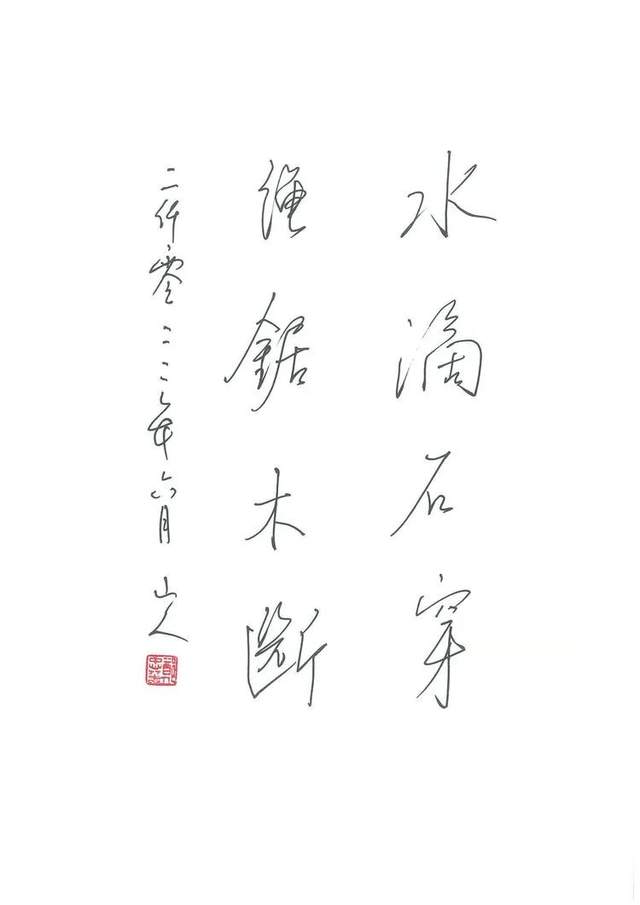 水滴石穿
繩鋸木斷
二仟零二二年六月 山人